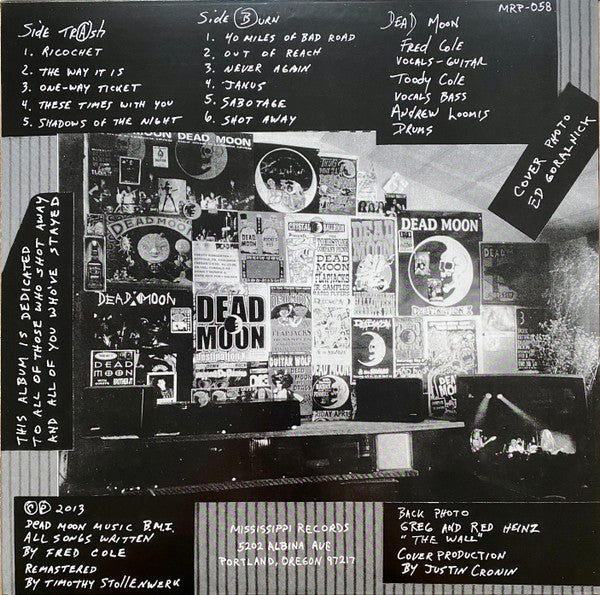 Side TRASH
1. RICOCHET
2. THE WAY IT IS
3. ONE-WAY TICKET
4. THESE TIMES WITH YOU
5. SHADOWS OF THE NIGHT
Side BURN
1. 40 MILES OF BAD ROAD
2. OUT OF REACH
3. NEVER AGAIN
4. JANUS
5. SABOTAGE
6. SHOT AWAY
DEAD MOON
FRED COLE
VOCALS-GUITAR
TOODY COLE
VOCALS BASS
ANDREW LOOMIS
DRUMS
MRP-058
COVER PHOTO
ED GORALNICK
THIS ALBUM IS DEDICATED
TO ALL OF THOSE WHO SHOT AWAY
AND ALL OF YOU WHO'VE STAYED
DEAD MOON
DEAD MOON
DEAD MOON
DEAD MOON
DEAD
MOON
DEAD
MOON
FLAPJACKS
JR. SAMPLES
DEAD
MOON
DEAD MOON
DEAD
MOON
FLAPJACKS
GUITAR WOLF
DEAD
MOON
DEAD MOON
Ⓒ Ⓟ 2013
DEAD MOON MUSIC B.M.I.
ALL SONGS WRITTEN
BY FRED COLE
REMASTERED
BY TIMOTHY STOLLENWERK
MISSISSIPPI RECORDS
5202 ALBINA AVE
PORTLAND, OREGON 97217
BACK PHOTO
GREG AND RED HEINZ
"THE WALL"
COVER PRODUCTION
BY JUSTIN CRONIN